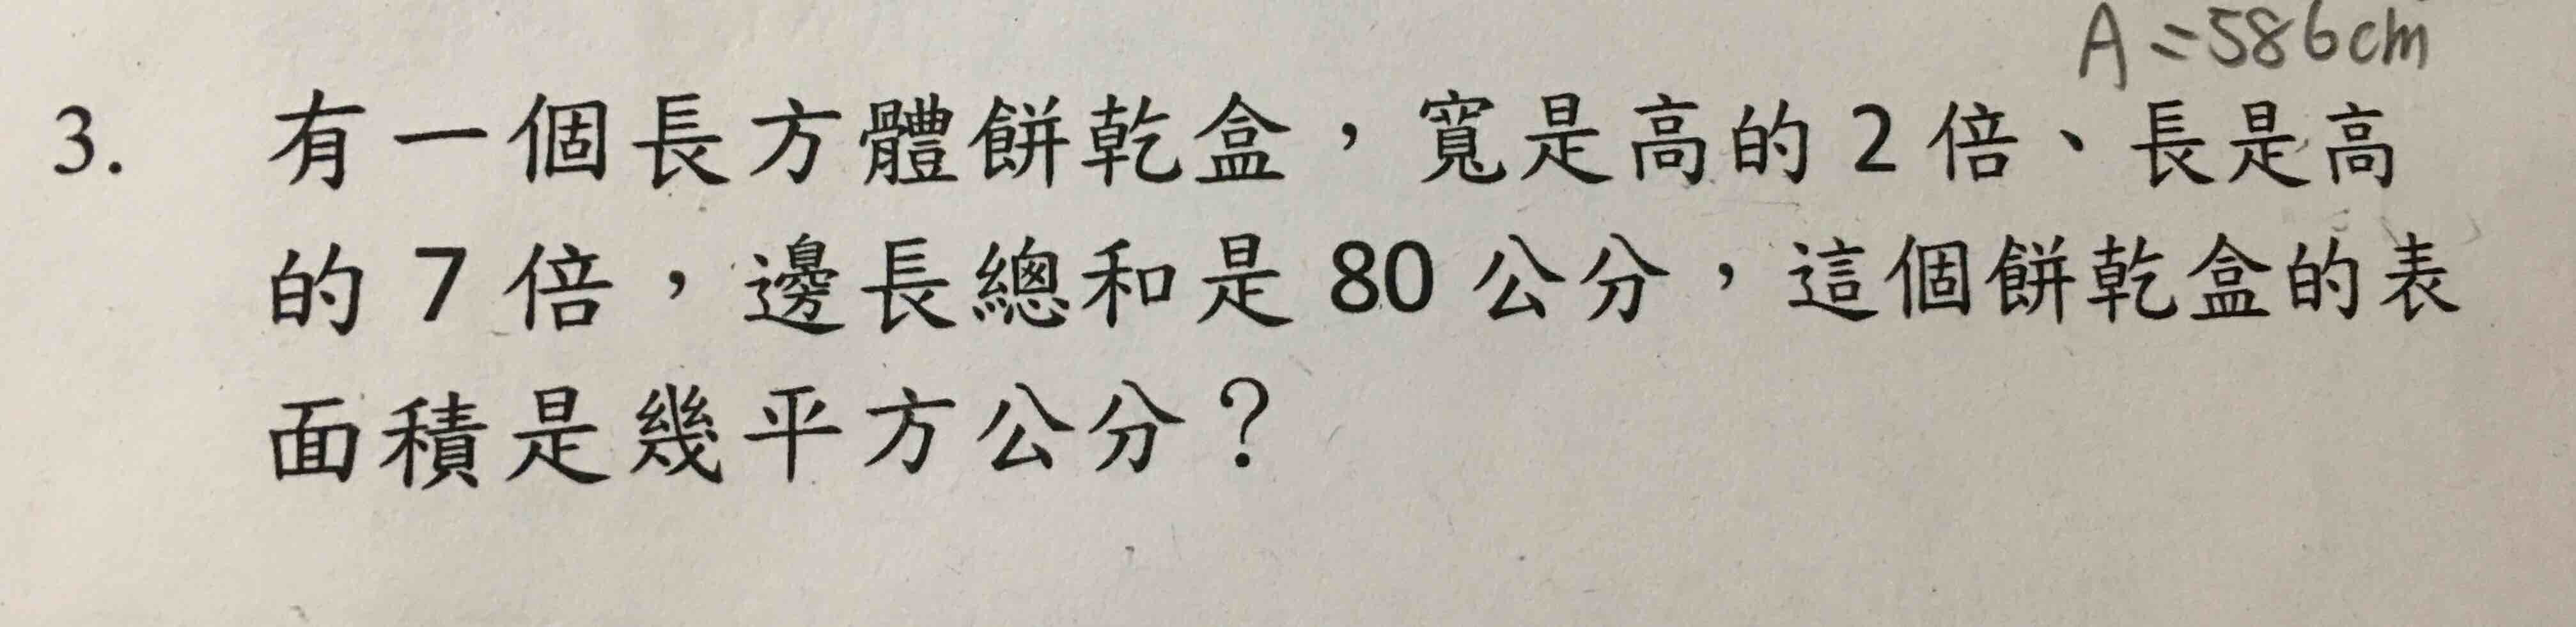 A=586cm
3. 有一個長方體餅乾盒，寬是高的2倍、長是高
的7倍，邊長總和是80公分，這個餅乾盒的表
面積是幾平方公分？